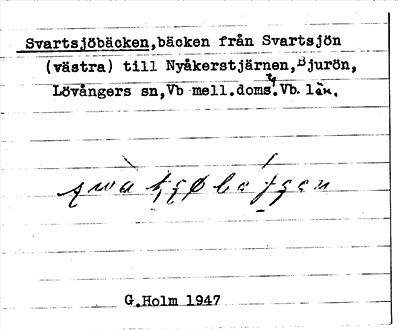 Svartsjöbäcken,bäcken från Svartsjön
(västra) till Nyåkerstjärnen,Bjurön,
Lövångers sn,Vb mell.doms:g Vb. län.
G.Holm 1947